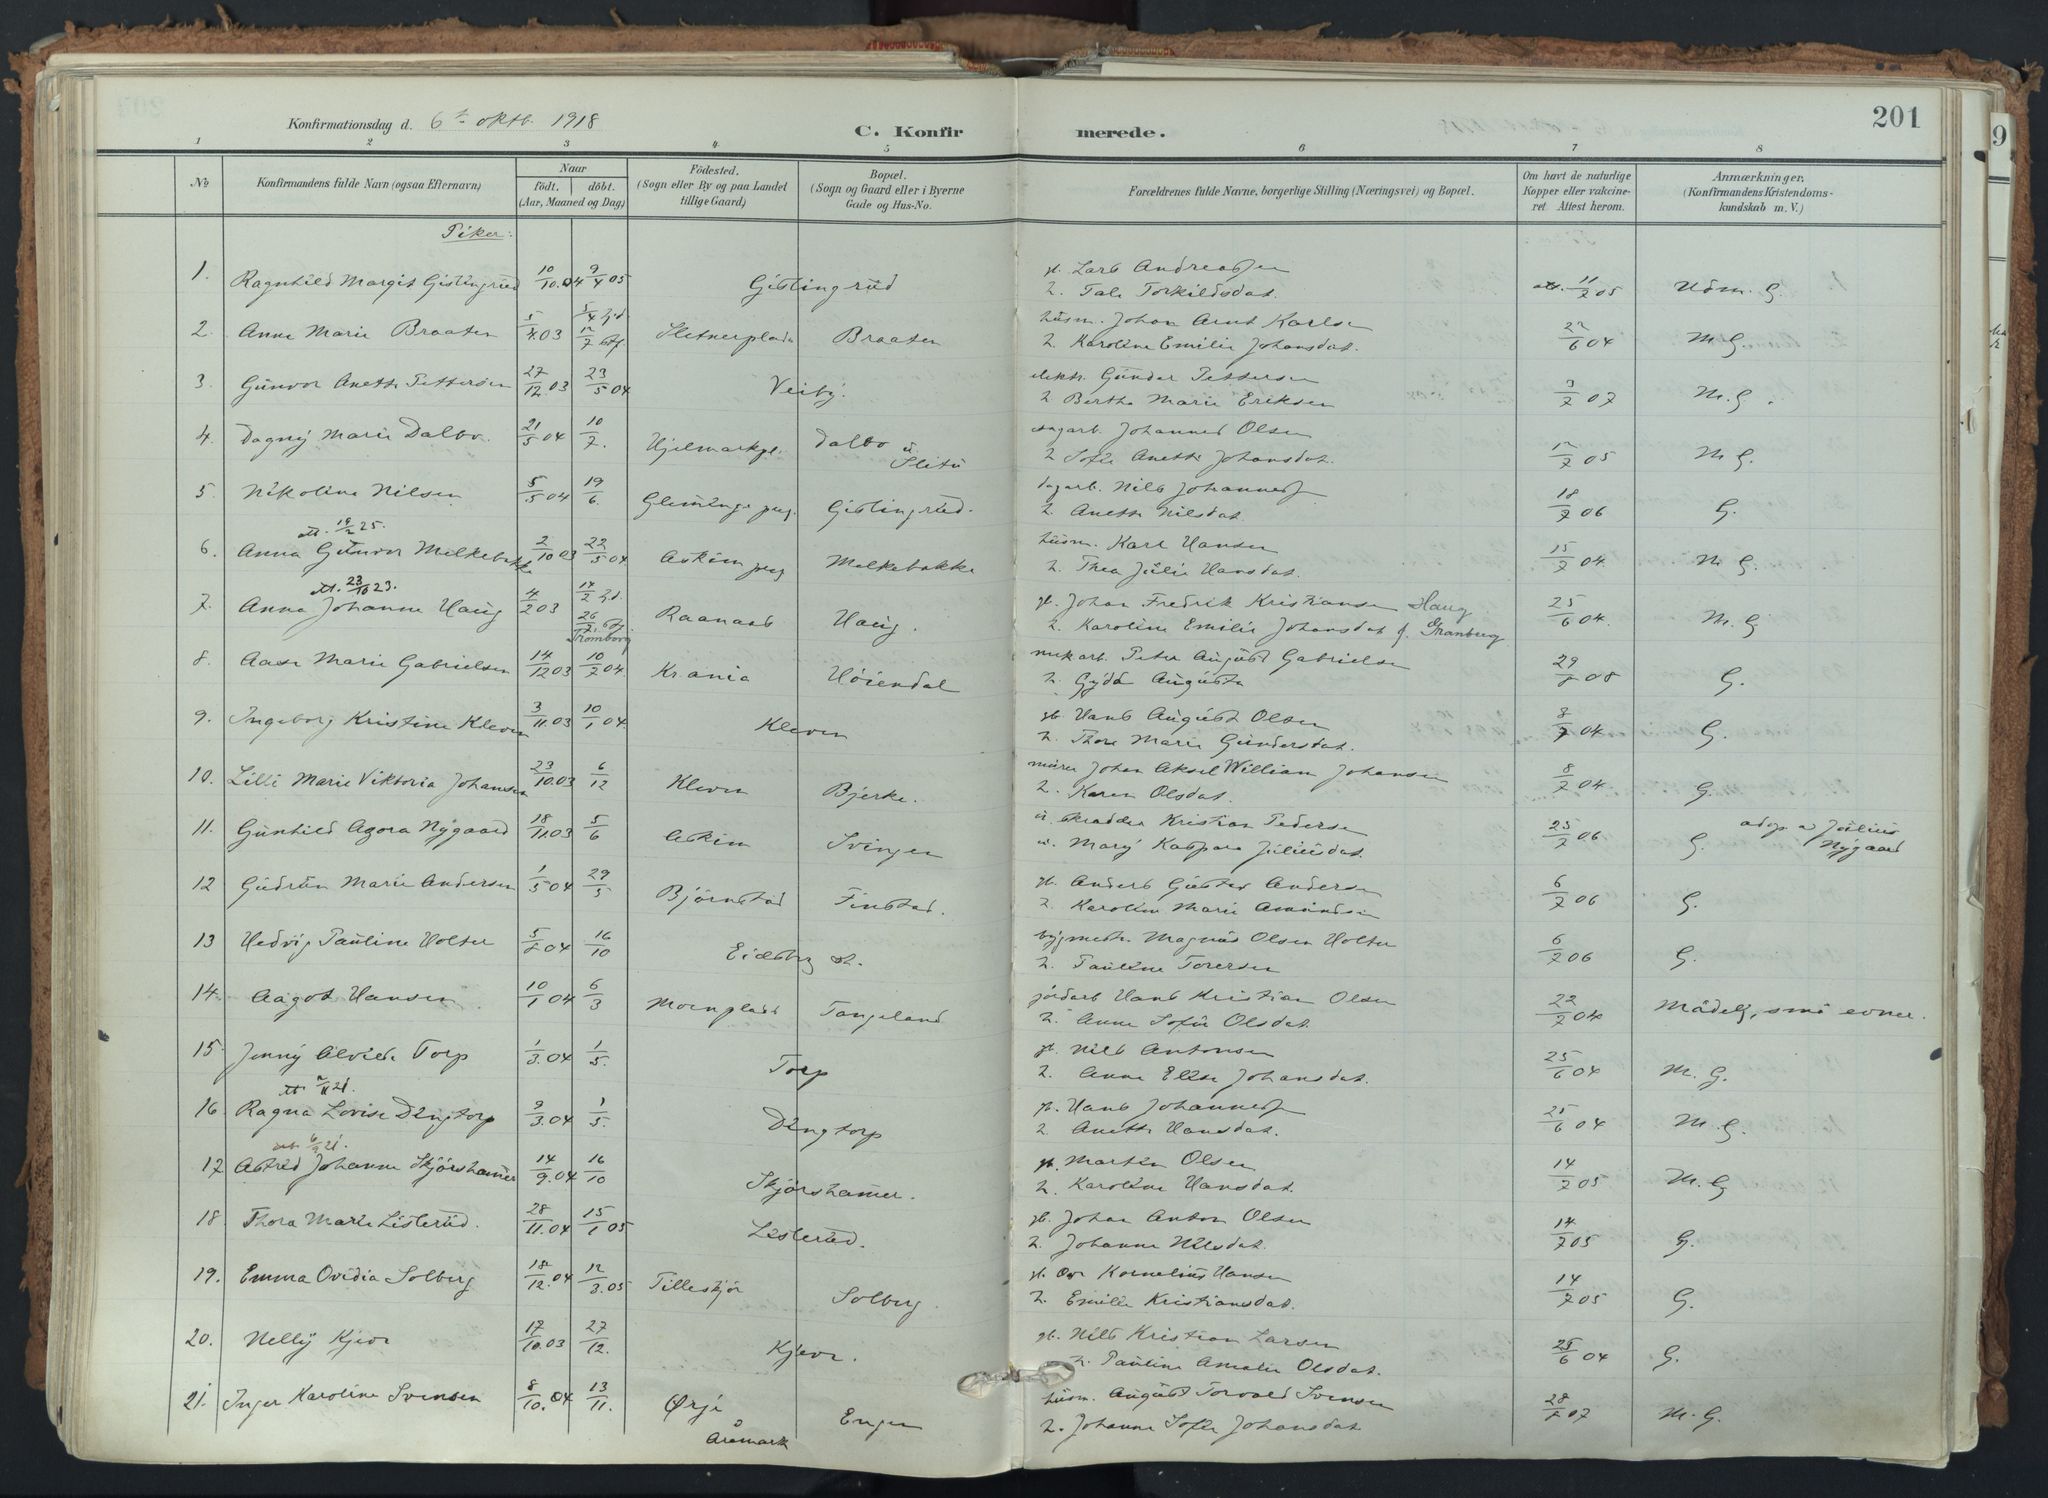 201
Konfirmationsdag d. 6te oktb. 1918
C. Konfirmerede.
1 2 3 4 5 6 7 8
No
Konfirmandens fulde Navn (ogsaa Efternavn)
Naar
födt. döbt.
(Aar, Maaned og Dag)
Födested.
(Sogn eller By og paa Landet
tillige Gaard)
Bopæl.
(Sogn og Gaard eller i Byerne
Gade og Hus-No.
Forældrenes fulde Navne, borgerlige Stilling (Næringsvei) og Bopæl.
Om havt de naturlige
Kopper eller vakcine-
ret Attest herom.
Anmærkninger,
(Konfirmandens Kristendoms-
kundskab m. V.)
Piker:
1. Ragnhild Margit Gistingrud 10/10.04 9/4 05 Gistingrud
gb. Lars Andreassen
h. Tale Torkildsdat. att. 11/7 05 Udm. G.
2. Anne Marie Braaten 5/4.03 5/4 hjd. 12/7 stf. Sletnerplads Braaten
husm. Johan Arnt Karlsen
h. Karoline Emilie Johansdat. 22/6 04 M.G.
3. Gunvor Anette Pettersen 27/12.03 23/5 04 Veiby.
elektr. Gunder Pettersen
h. Berthe Marie Eriksen 3/7 07 M.G.
4. Dagny Marie Dalbo. 21/5 04 10/7. Hjelmarkpl. Dalbo i Slitu
sagarb. Johannes Olsen
h. Sofie Anette Johansdat. 12/7 05 M.G.
5. Nikoline Nilsen 5/5 04 19/6. Glemminge preg. Gistingrud.
dagarb. Nils Johanness.
h. Anette Nilsdat. 18/7 06 G.
att. 19/2 25.
6. Anna Gunvor Melkebakke 2/10 03 22/5 04 Askim preg Melkebakke
husm. Karl Hansen
h. Thea Julie Hansdat. 15/7 04. M.G.
att. 23/10 23.
7. Anna Johanne Haug 4/2 03 14/2 hjd. 26/7 stf. Trømborg Raanaas Haug.
gb. Johan Fredrik Kristiansen Haug
h. Karoline Emilie Johansdat f. Granberg 25/6 04. M.G.
8. Aase Marie Gabrielsen 14/12 03 10/7 04. Krania Høiendal
mekarb. Peter August Gabrielsen
h. Gyda Augusta 29/8 08 G.
9. Ingeborg Kristine Kleven 3/11.03 10/1 04. Kleven
gb. Hans August Olsen
h. Thora Marie Gundersdat. 8/7 04 G.
10. Lilli Marie Viktoria Johansen 23/10.03 6/12 Kleven Bjerke.
murer Johan Aksel William Johansen
h. Karen Olsdat. 8/7 04 G.
11. Gunhild Agora Nygaard 18/11.03 5/6 Askim Svingen
u. skrædder Kristian Pedersen
u. Mary Kaspara Juliusdat. 25/7 06 G. adop. a Julius
Nygaard
12 Gudrun Marie Andersen 1/5 04 29/5 Bjørnstad Finstad.
gb. Anders Gustav Andersen
h. Karoline Marie Amundsen 6/7 06 G.
13 Hedvig Pauline Holter 5/8 04 16/10 Eidsberg st.
bygmestr. Magnus Olsen Holter
h. Pauline Toresen 6/7 06 G.
14. Aagot Hansen 10/1 04 6/3 Moenplads Tangeland
jordarb Hans Kristian Olsen
h. Anne Sofie Olsdat. 22/7 04 Mådelg, små evner.
15. Jenny Alvilde Torp 1/3.04 1/5. Torp
gb. Nils Antonsen
h. Anne Elise Johansdat. 25/6 04 M.G.
att. 2/11 21.
16. Ragna Lovise Dingtorp 9/3.04 1/5. Dingtorp
gb. Hans Johanness.
h. Anette Hansdat. 25/6 04 M.G.
att 6/9 21
17 Astrid Johanne Skjørshamer 14/9.04 16/10 Skjørshamer.
gb. Martin Olsen
h. Karoline Hansdat. 14/7 05 M.G
18. Thora Marie Listerud. 28/11.04 15/1 05 Listerud.
gb. Johan Anton Olsen
h. Johanne Nilsdat. 14/7 05 G.
19. Emma Ovidia Solberg 18/12.04 12/3.05 Tilleskjør Solberg.
gb. Ove Kornelius Hansen
h. Emilie Kristiansdat. 14/7 05 G.
20. Nelly Kjeve 17/10.03 27/12. Kjeve.
gb. Nils Kristian Larsen
h. Pauline Amalie Olsdat. 25/6 04 G.
21. Inger Karoline Svensen 8/10.04 13/11. Ørje Aremark Enger
husm. August Torvald Svensen
h. Johanne Sofie Johansdat 28/8 07 M.G.